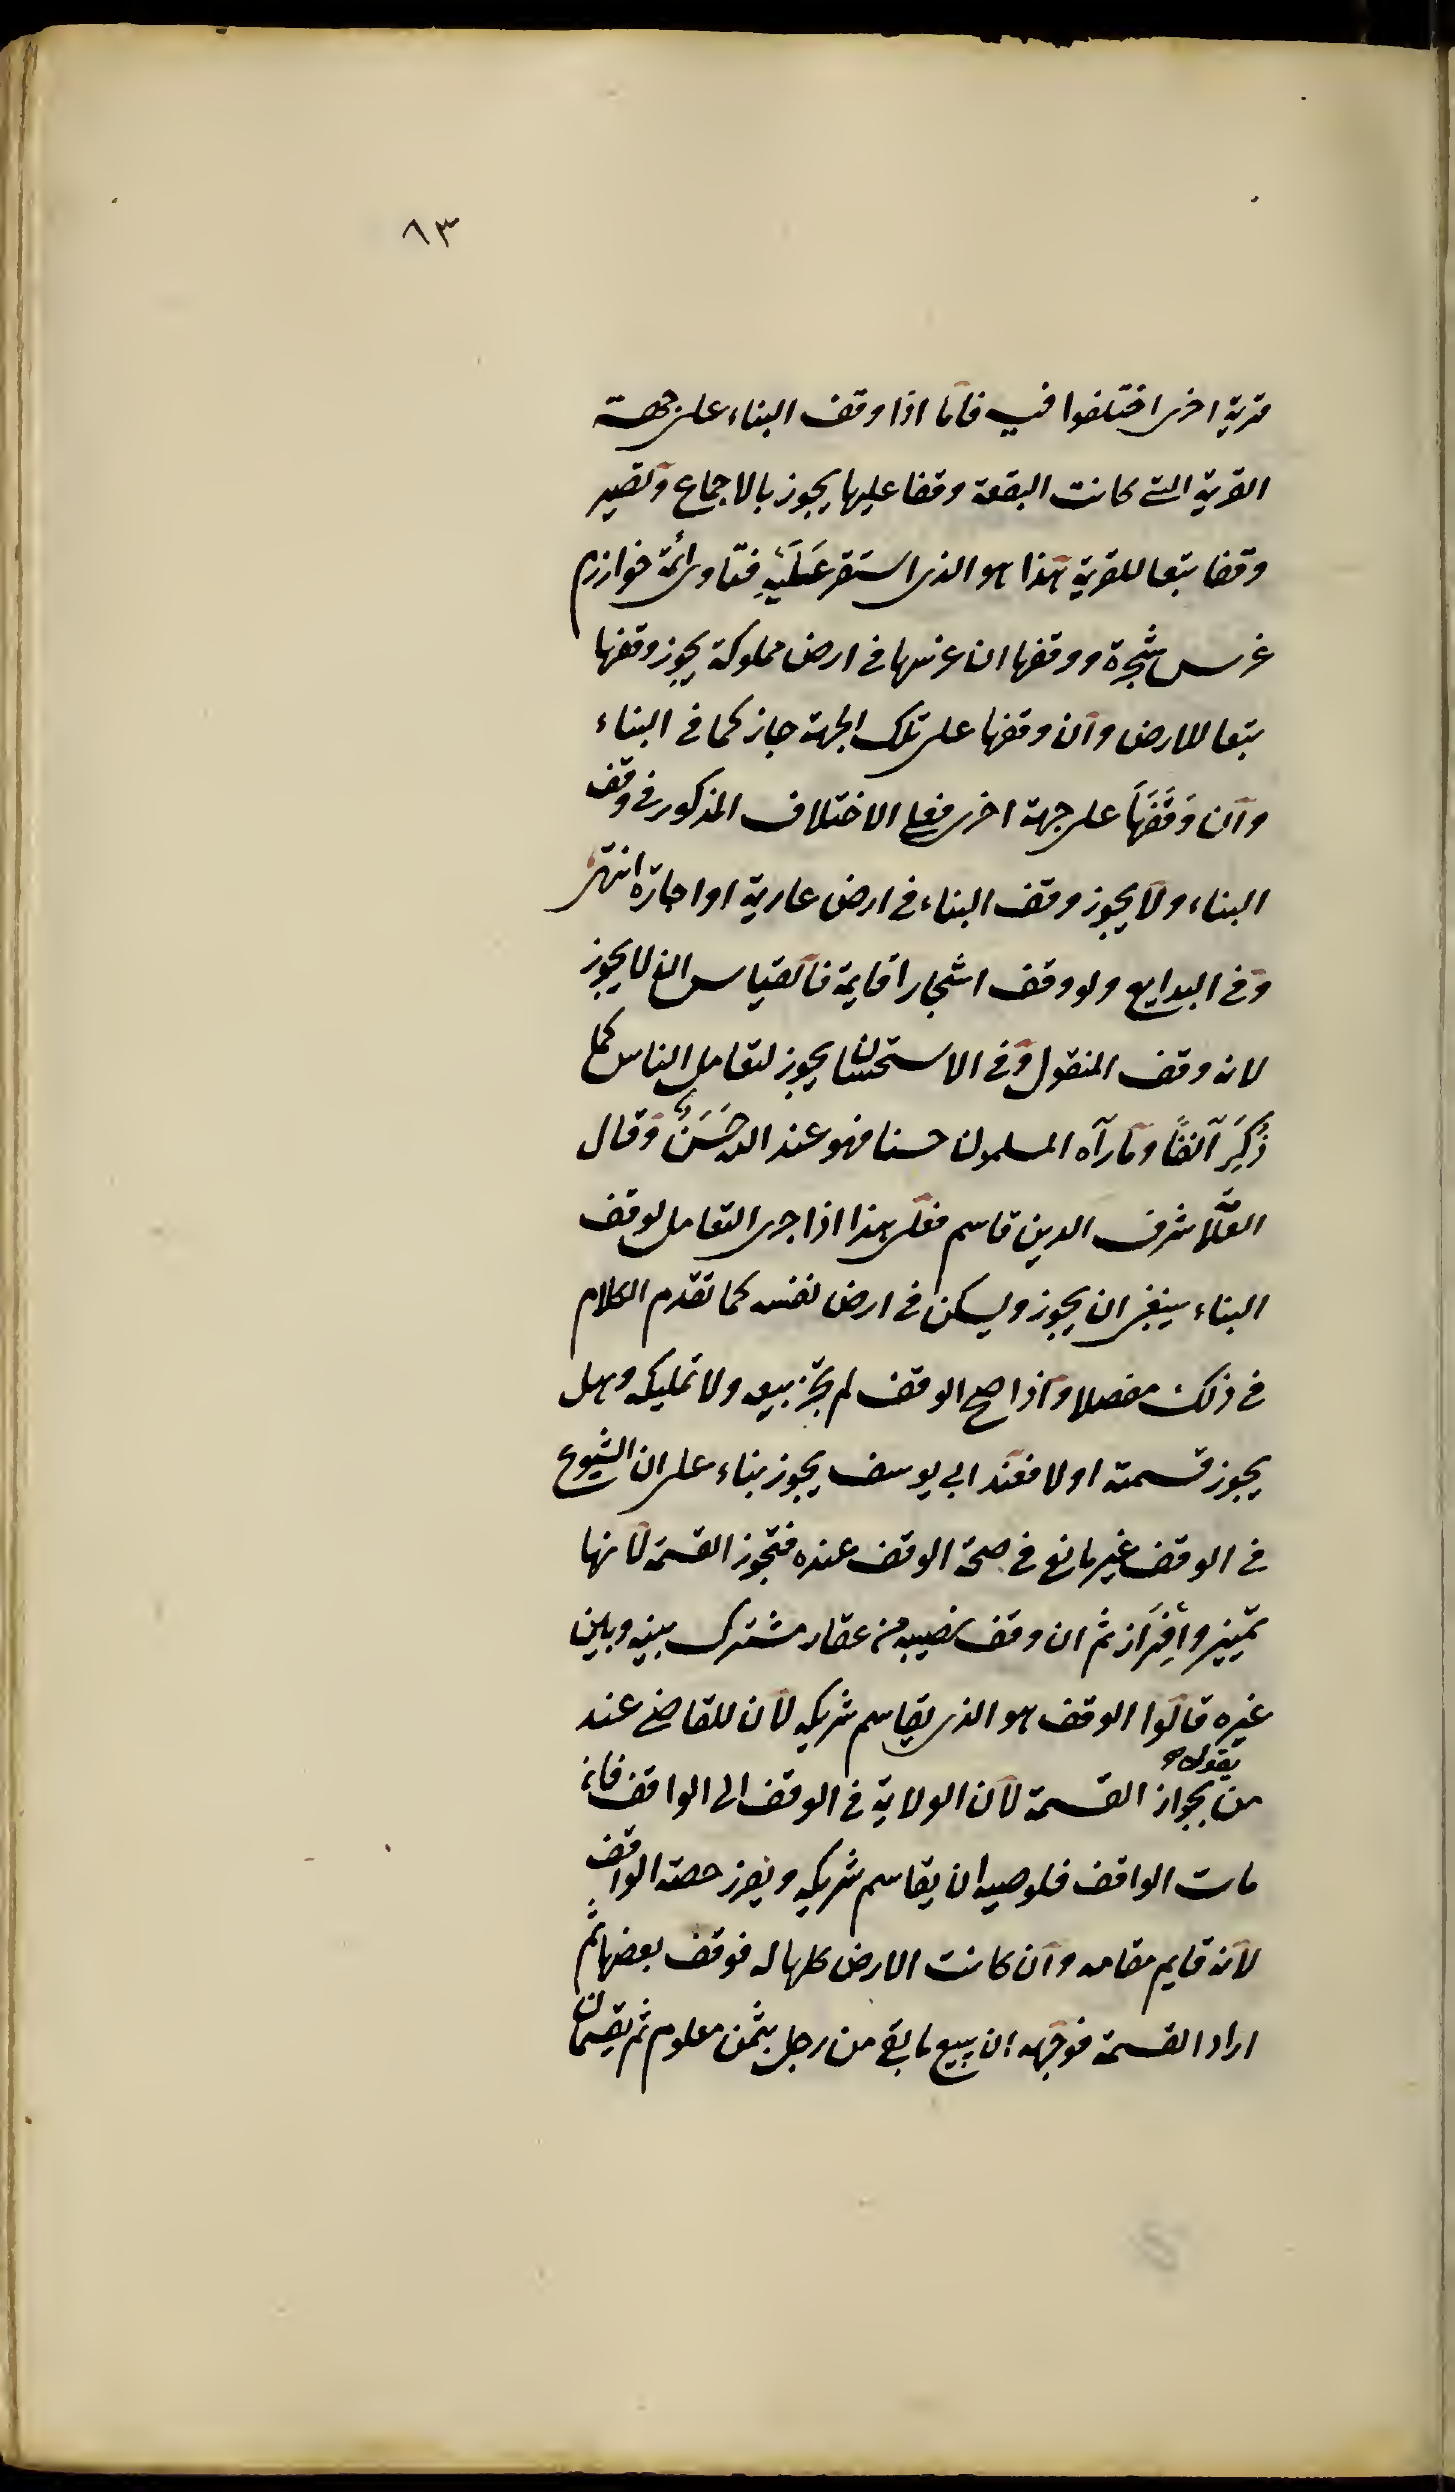 ٨٣
قربة اخرى اختلفوا فيه فاما اذا وقف البناء على جهة
القربة التي كانت البقعة وقفا عليها يجوز بالاجماع وتصير
وقفا تبعا للقربة هذا هو الذى استقر عَلَيْهِ فتاوى ائمة خوارزم
غرس شجرة ووقفها ان غرسها فى ارض مملوكة يجوز وقفها
تبعا للارض وان وقفها على تلك الجهة جاز كما فى البناء
وان وَقَفَهَا على جهة اخرى فعلى الاختلاف المذكور فى وقف
البناء ولا يجوز وقف البناء فى ارض عارية او اجارة انتهى
وفى البدايع ولو وقف اشجارا قايمة فالقياس ان لا يجوز
لانه وقف المنقول وفى الاستحسان يجوز لتعامل الناس كما
ذُكِرَ آنفًا وما رآه المسلمون حسنا فهو عند الله حَسَنٌ وقال
العلّامة شرف الدين قاسم فعلى هذا اذا جرى التعامل لوقف
البناء ينبغى ان يجوز وليكن فى ارض نفسه كما تقدم الكلام
فى ذلك مفصلا واذا صح الوقف لم يجز بيعه ولا تمليكه وهل
يجوز قسمته او لا فعند ابى يوسف يجوز بناء على ان الشيوع
فى الوقف غير مانع فى صحة الوقف عنده فتجوز القسمة لانها
تمييز وافراز ثم ان وقف نصيبه من عقار مشترك بينه وبين
غيره قالوا الوقف هو الذى يقاسم شريكه لان للقاضى عند
من يقول بجواز القسمة لان الولاية فى الوقف الى الواقف فان
مات الواقف فلوصيه ان يقاسم شريكه ويفرز حصة الواقف
لانه قايم مقامه وان كانت الارض كلها له فوقف بعضها ثم
اراد القسمة فوجهه ان يبيع ما بقى من رجل بثمن معلوم ثم يقتسمان